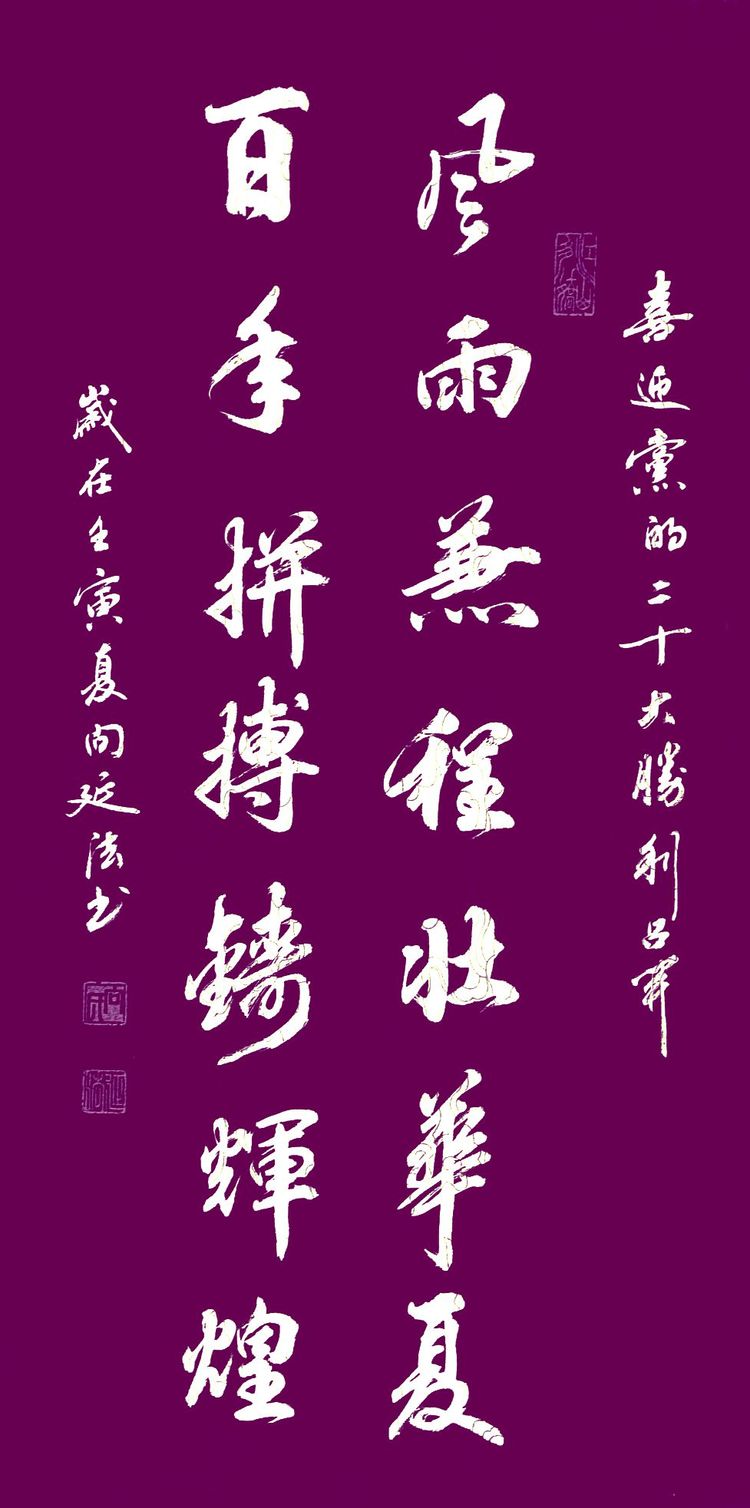 喜迎黨的二十大勝利召開
風雨兼程壯華夏
百年拼搏鑄輝煌
歲在壬寅夏延法书